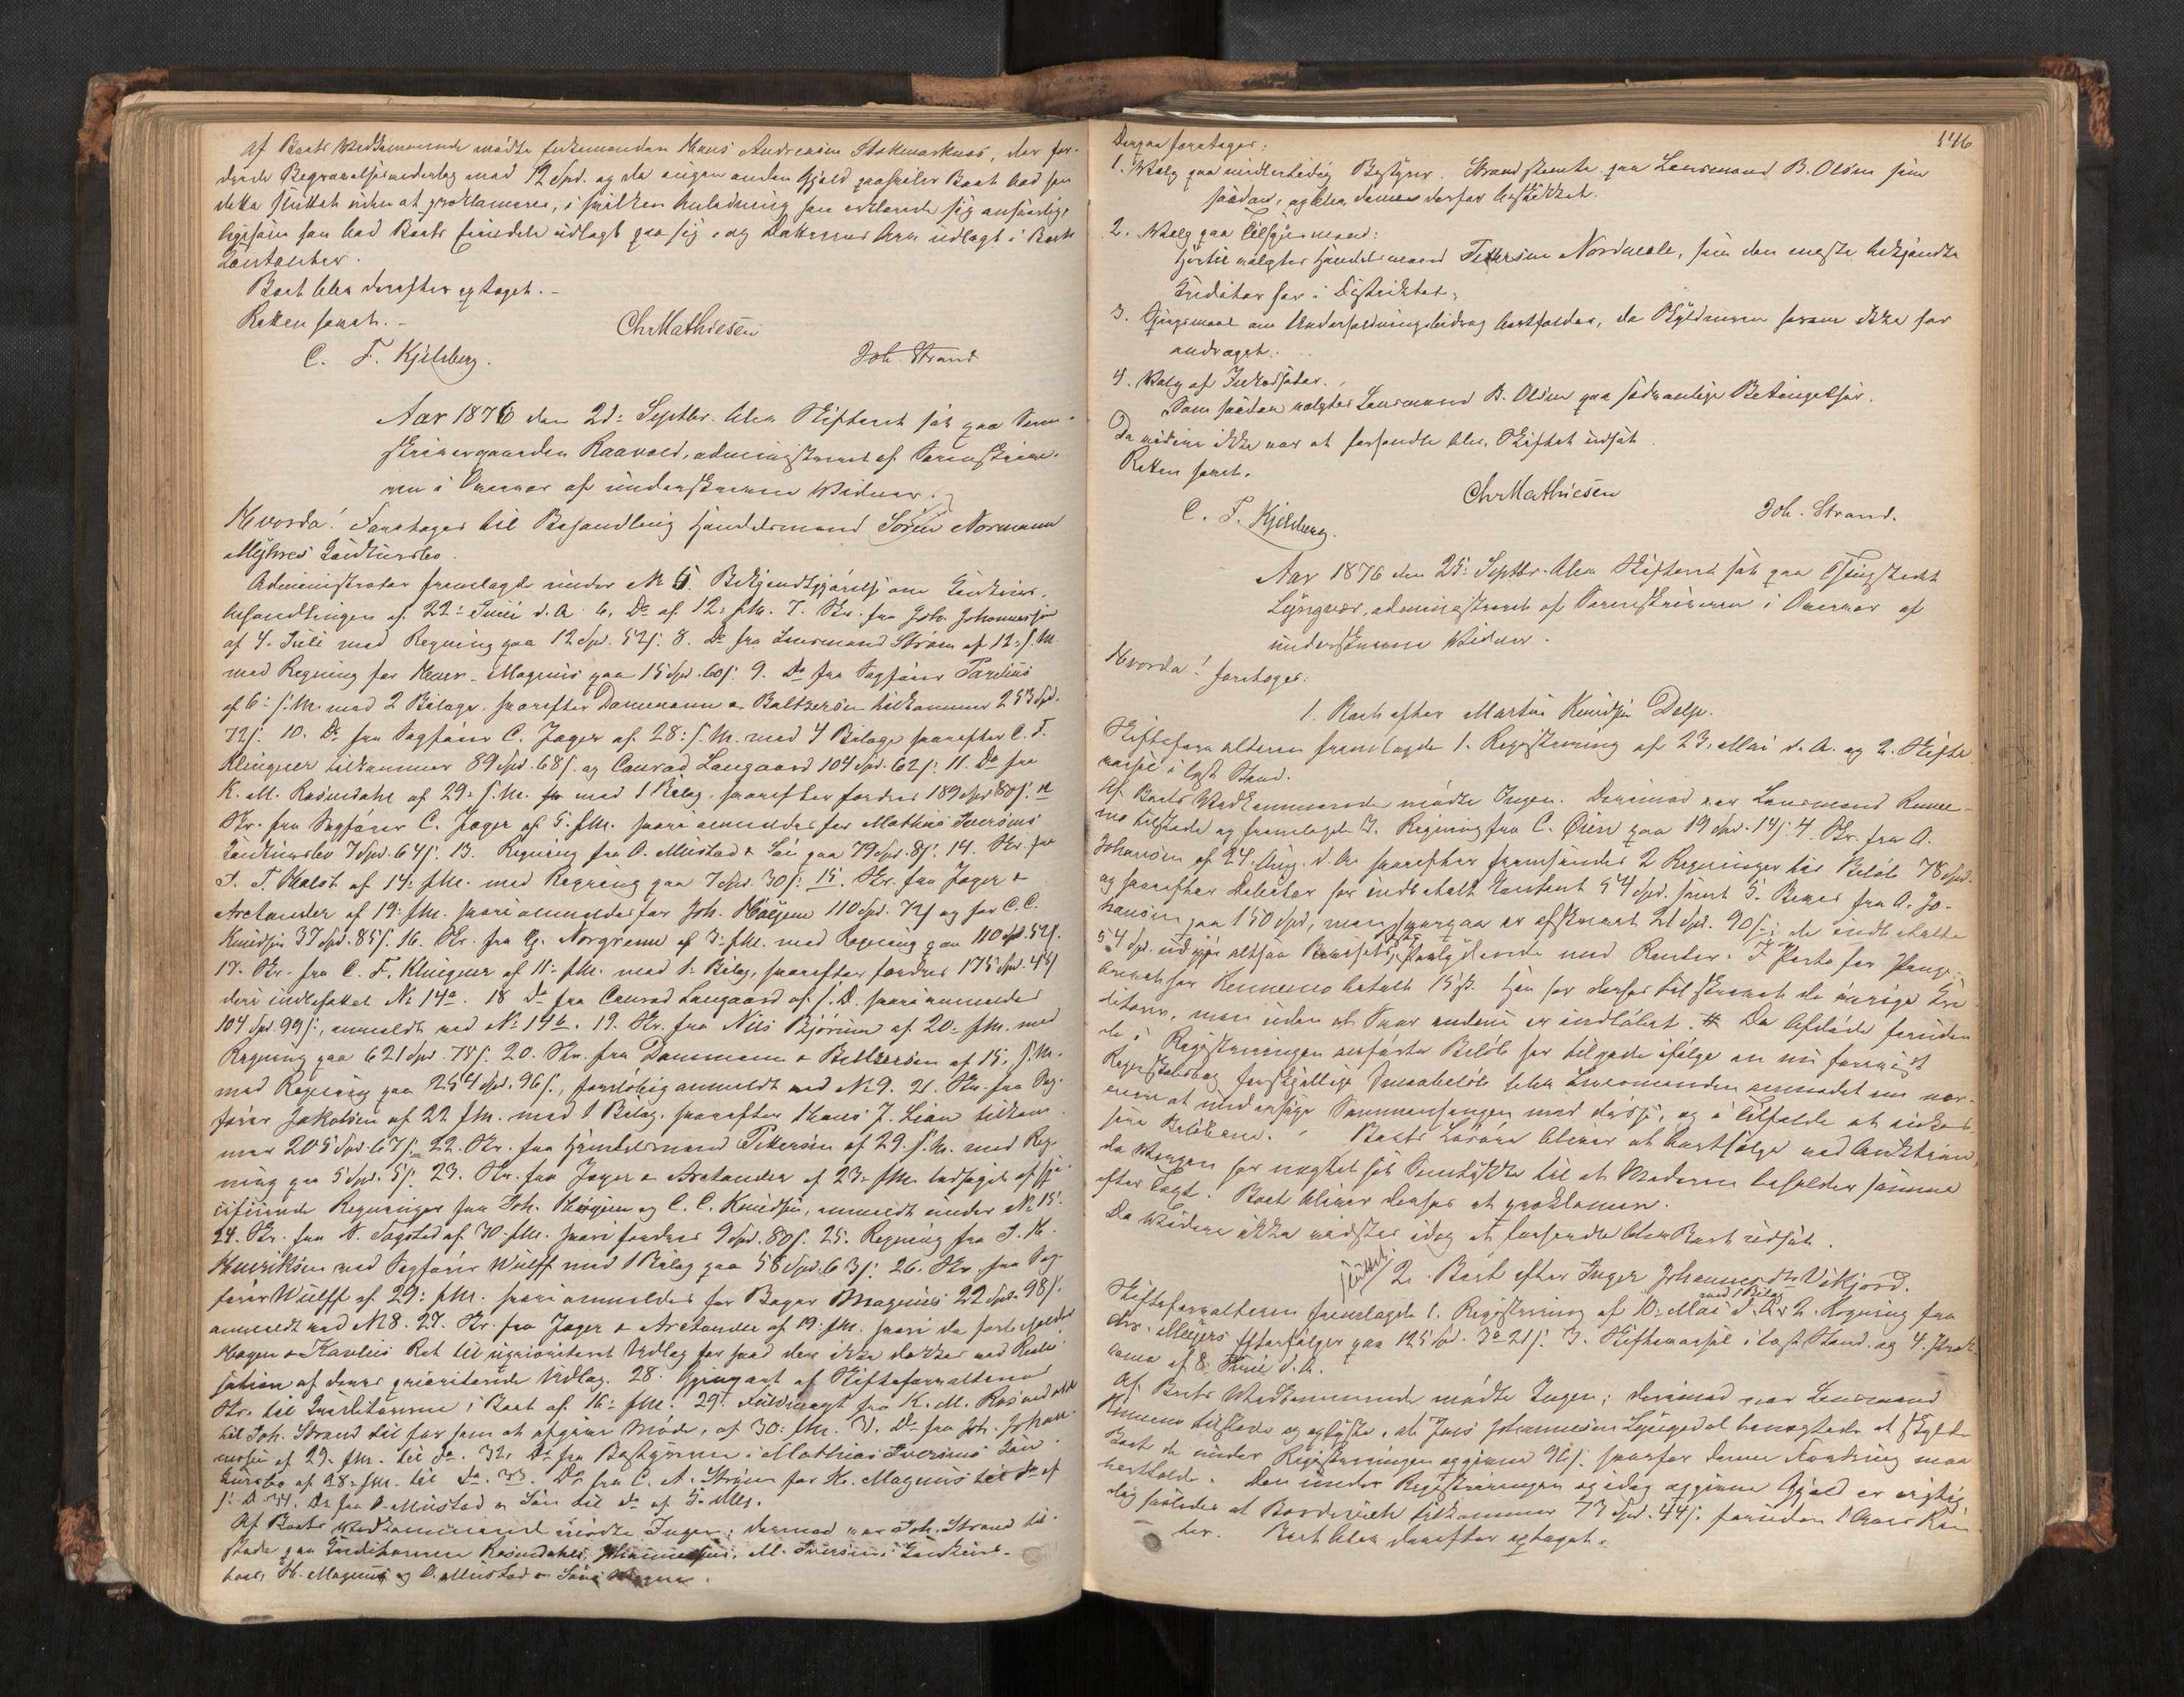 af Boets Vedkommende mødte Enkemanden Hans Andreasen Stokmarknes, der for-
drede Begravelsesvederlag med 12 Spd. og da ingen anden Gjæld paahviler Boet bad han
dette sluttet uden at proklameres, i hvilken Anledning han erklærede sig ansvarlig,
ligesom han bad Boets Eiendele udlagt paa sig, og Døttrenes Arv udlagt i Boets
Contanter.
Boet blev derefter optaget. -
Retten hævet. -
Chr Mathiesen
C. F. Kjelsberg.
Joh. Strand
Aar 1876 den 2d: Septbr. blev Skifteret sat paa Soren-
skrivergaarden Raavold, administreret af Sorenskrive-
ren i Overvær af underskrevne Vidner.
Hvorda! Foretoges til Behandling Handelsmand Søren Normann
Myhres Concursbo.
Administrator fremlagde under No 5. Bekjendtgjørelse om Concurs-
behandlingen af 22: Juni d. A. 6. Do af 12: f.M. 7. Skr. fra Joh. Johannessen
af 4. Juli med Regning paa 12 Spd. 52 s. 8. Do fra Lensmand Strøm af 12: f.M.
med Regning for Magnus paa 15 Spd. 60 s. 9. Do fra Sagfører Parelius
af 6: f.M. med 2 Bilage, hvorefter Dammann & Baltzersen tilkommer 253 Spd.
72 s. 10. Do fra Sagfører C. Jager af 28: f.M. med 4 Bilage hvorefter C. F.
Klingner tilkommer 89 Spd. 68 s. og Conrad Langaard 104 Spd. 62 s. 11. Do fra
K. M. Rosendahl af 29: f.M. med 1 Bilag, hvorefter fordres 189 Spd. 80 s. 12
Skr. fra Sagfører C. Jager af 5. f.M. hvori anmeldes for Mathias Iversens
Concursbo 7 Spd. 64 s. 13. Regning fra O. Mustad & Søn paa 79 Spd. 8 s. 14. Skr. fra
af 14: f.M. med Regning paa 7 Spd. 30 s. 15. Skr. fra Jager &
Arctander af 19: f.M. hvori anmeldes for Joh. 110 Spd. 72 s og for C. C.
Knudsen 37 Spd. 85 s. 16. Skr. fra Norgrenn af 3: f.M. med Regning paa 110 Spd. 52 s.
17. Skr. fra C. F. Klingner af 11: f.M. med 1. Bilag, hvorefter fordres 175 Spd. 48 s
deri indbefattet No 14a. 18 Do fra Conrad Langaard af s. D. hvori anmeldes
104 Spd. 99 s., anmeldt ved No 14b. 19. Skr. fra Nils Bjørnum af 20: f.M. med
Regning paa 621 Spd. 78 s. 20. Skr. fra Dammann & Baltzersen af 15: f.M.
med Regning paa 254 Spd. 96 s., foreløbig anmeldt ved No 9. 21. Skr. fra Sag-
fører Jakobsen af 22 f.M. med 1 Bilag, hvorefter Hans J. Lian tilkom-
mer 205 Spd. 67 s. 22. Skr. fra Handelsmand Pettersen af 29. f.M. med Reg-
ning paa 5 Spd. 5 s. 23. Skr. fra Jager & Arctander af 23: f.M. ledsaget af spe-
cificerede Regninger fra Joh. og C. C. Knudsen, anmeldt under No 15.
24. Skr. fra N. Fagstad af 30. f.M. hvori fordres 9 Spd. 80 s. 25. Regning fra
Henriksen ved Sagfører Wulff med 1 Bilag paa 58 Spd. 63 s. 26. Skr. fra Sag-
fører Wulff af 29: f.M. hvori anmeldes for Bager Magnus 22 Spd. 98 s.
anmeldt ved No 8. 27. Skr. fra Jager & Arctander af 19: f.M. hvori de forbeholder
Ret til uprioriteret Udlæg for hvad der ikke dækkes ved Reali-
sation af deres prioriterede Udlæg. 28. Gjenpart af Skifteforvalterens
Skr. til Creditorerne i Boet af 16: f.M. 29. Fuldmagt fra K. M. Rosendahl
til Joh. Strand til for ham at afgive Møde, af 30: f.M. 31. Do fra Joh. Johan-
nessen af 29. f.M. til do. 32. Do fra Bestyreren i Mathias Iversens Con-
cursbo af 28: f.M. til do. 33. Do fra C. A. Strøm for H. Magnus til do af
s. D. 34. Do fra O. Mustad & Søn til do af 5. Mts.
Af Boets Vedkommende mødte Ingen; derimod var Joh. Strand til-
stede paa Creditorerne Rosendahl, Johannessen, M. Iversens Concurs-
boes, H. Magnus og O. Mustad & Søns Vegne.
146
Derpaa foretoges:
1. Valg paa midlertidig Bestyrer. Strand stemte paa Lensmand B. Olsen som
saadan, og blev denne derfor beskikket.
2. Valg paa Tilsynsmand:
Hertil valgtes Handelsmand Pettersen Nordmæle, som den eneste bekjendte
Creditor her i Distriktet.
3. Spørgsmaal om Underholdningsbidrag bortfalder, da Skyldneren herom ikke har
andraget.
4. Valg af Inkassator.
Som saadan valgtes Lensmand B. Olsen paa sædvanlige Betingelser.
Da videre ikke var at forhandle blev Skiftet udsat.
Retten hævet.
Chr Mathiesen
C. F. Kjelsberg.
Joh. Strand.
Aar 1876 den 25: Septbr. blev Skifteret sat paa Thingstedet
Lyngvær, administreret af Sorenskriveren i Overvær af
underskrevne Vidner.
Hvorda! foretoges:
1. Boet efter Martin Knudsen Delp.
Skifteforvalteren fremlagde 1. Registrering af 23. Mai d. A. og 2. Skifte-
varsel i lagt Stand.
Af Boets Vedkommende mødte Ingen. Derimod var Lensmand Rennemo
tilstede og fremlagde 3. Regning fra C. Øien paa 19 Spd. 14 s. 4. Skr. fra A.
Johansen af 24. Aug. d. A. hvorefter fremsendes 2 Regninger til Beløb 78 Spd.
og hvorefter Debitor har indbetalt Contant 54 Spd. samt 5. Beviis fra A. Jo-
hansen paa 150 Spd., men hvorpaa er afskrevet 21 Spd. 90 s.; de indbetalte
54 Spd. udgjør altsaa Bevisets Paalydende med Renter. I Porto for Penge-
brevet har Rennemo betalt 15 s. Han har derfor tilskrevet de øvrige Cre-
ditorer, men uden at Svar endnu er indløbet. Da Afdøde foruden
de i Registreringen anførte Beløb har tilgode ifølge en nu forevist
Regnskabsbog forskjellige Smaabeløb blev Lensmanden anmodet om nær-
mere at undersøge Sammenhængen med disse, og i Tilfælde at incas-
sere Beløbene. Boets Løsøre bliver at bortsælge ved Auktion
da Værgen har nægtet sit Samtykke til at Moderen beholder samme
efter Taxt. Boet bliver derfor at proklamere.
Da Videre ikke vidstes idag at forhandle blev Boet udsat.
sluttet
2. Boet efter Inger Johannesdtr Vikjord.
Skifteforvalteren fremlagde 1. Registrering af 10: Mai d. A. 2. Regning fra
med 1 Bilag
Chr. Meyers Efterfølger paa 125 Spd. 3 o 21 s. 3. Skiftevarsel i lagt Stand og 4. Prok-
lama af 8. Juni d. A.
Af Boets Vedkommende mødte Ingen; derimod var Lensmand
Rennemo tilstede og oplyste, at Jens Johannesen Lyngedal benægtede at skylde
Boet de under Registreringen opgivne 96 s. hvorfor denne Fordring maa
bortfalde. Den under Registreringen og idag opgivne Gjæld er rigtig,
dog saaledes at Borderwich tilkommer 73 Spd. 44 s. foruden 1 Aars Ren-
ter. Boet blev derefter optaget.